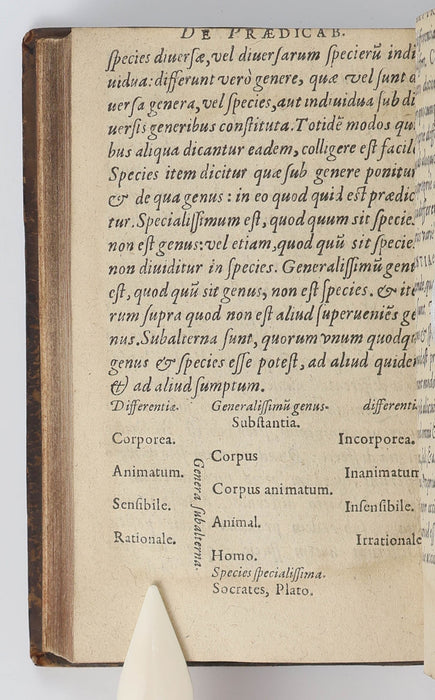 DE PRÆDICAB.
ſpecies diuerſæ, vel diuerſarum ſpecierũ indi
uidua: differunt verò genere, quæ vel ſunt d
uerſa genera, vel ſpecies, aut indiuidua ſub di
uerſis generibus conſtituta. Totidẽ modos qui
bus aliqua dicantur eadem, colligere eſt facil
Species item dicitur quæ ſub genere ponitur
& de qua genus: in eo quod quid eſt prædic
tur. Specialiſſimum eſt, quod quum ſit ſpecie
non eſt genus: vel etiam, quod quũ ſit ſpecie
non diuiditur in ſpecies. Generaliſſimũ gen
eſt, quod quũ ſit genus, non eſt ſpecies. & ite
rum ſupra quod non eſt aliud ſuperueniẽs ge
nus. Subalterna ſunt, quorum vnum quodq
genus & ſpecies eſſe poteſt, ad aliud quide
& ad aliud ſumptum.
Differentiæ. Generaliſſimũ genus. differenti
Subſtantia.
Corporea. Incorporea.
Corpus
Animatum. Inanimatum
Corpus animatum.
Senſibile. Inſenſibile.
Animal.
Rationale. Irrationale
Homo.
Genera ſubalterna.
Species ſpecialiſſima.
Socrates, Plato.